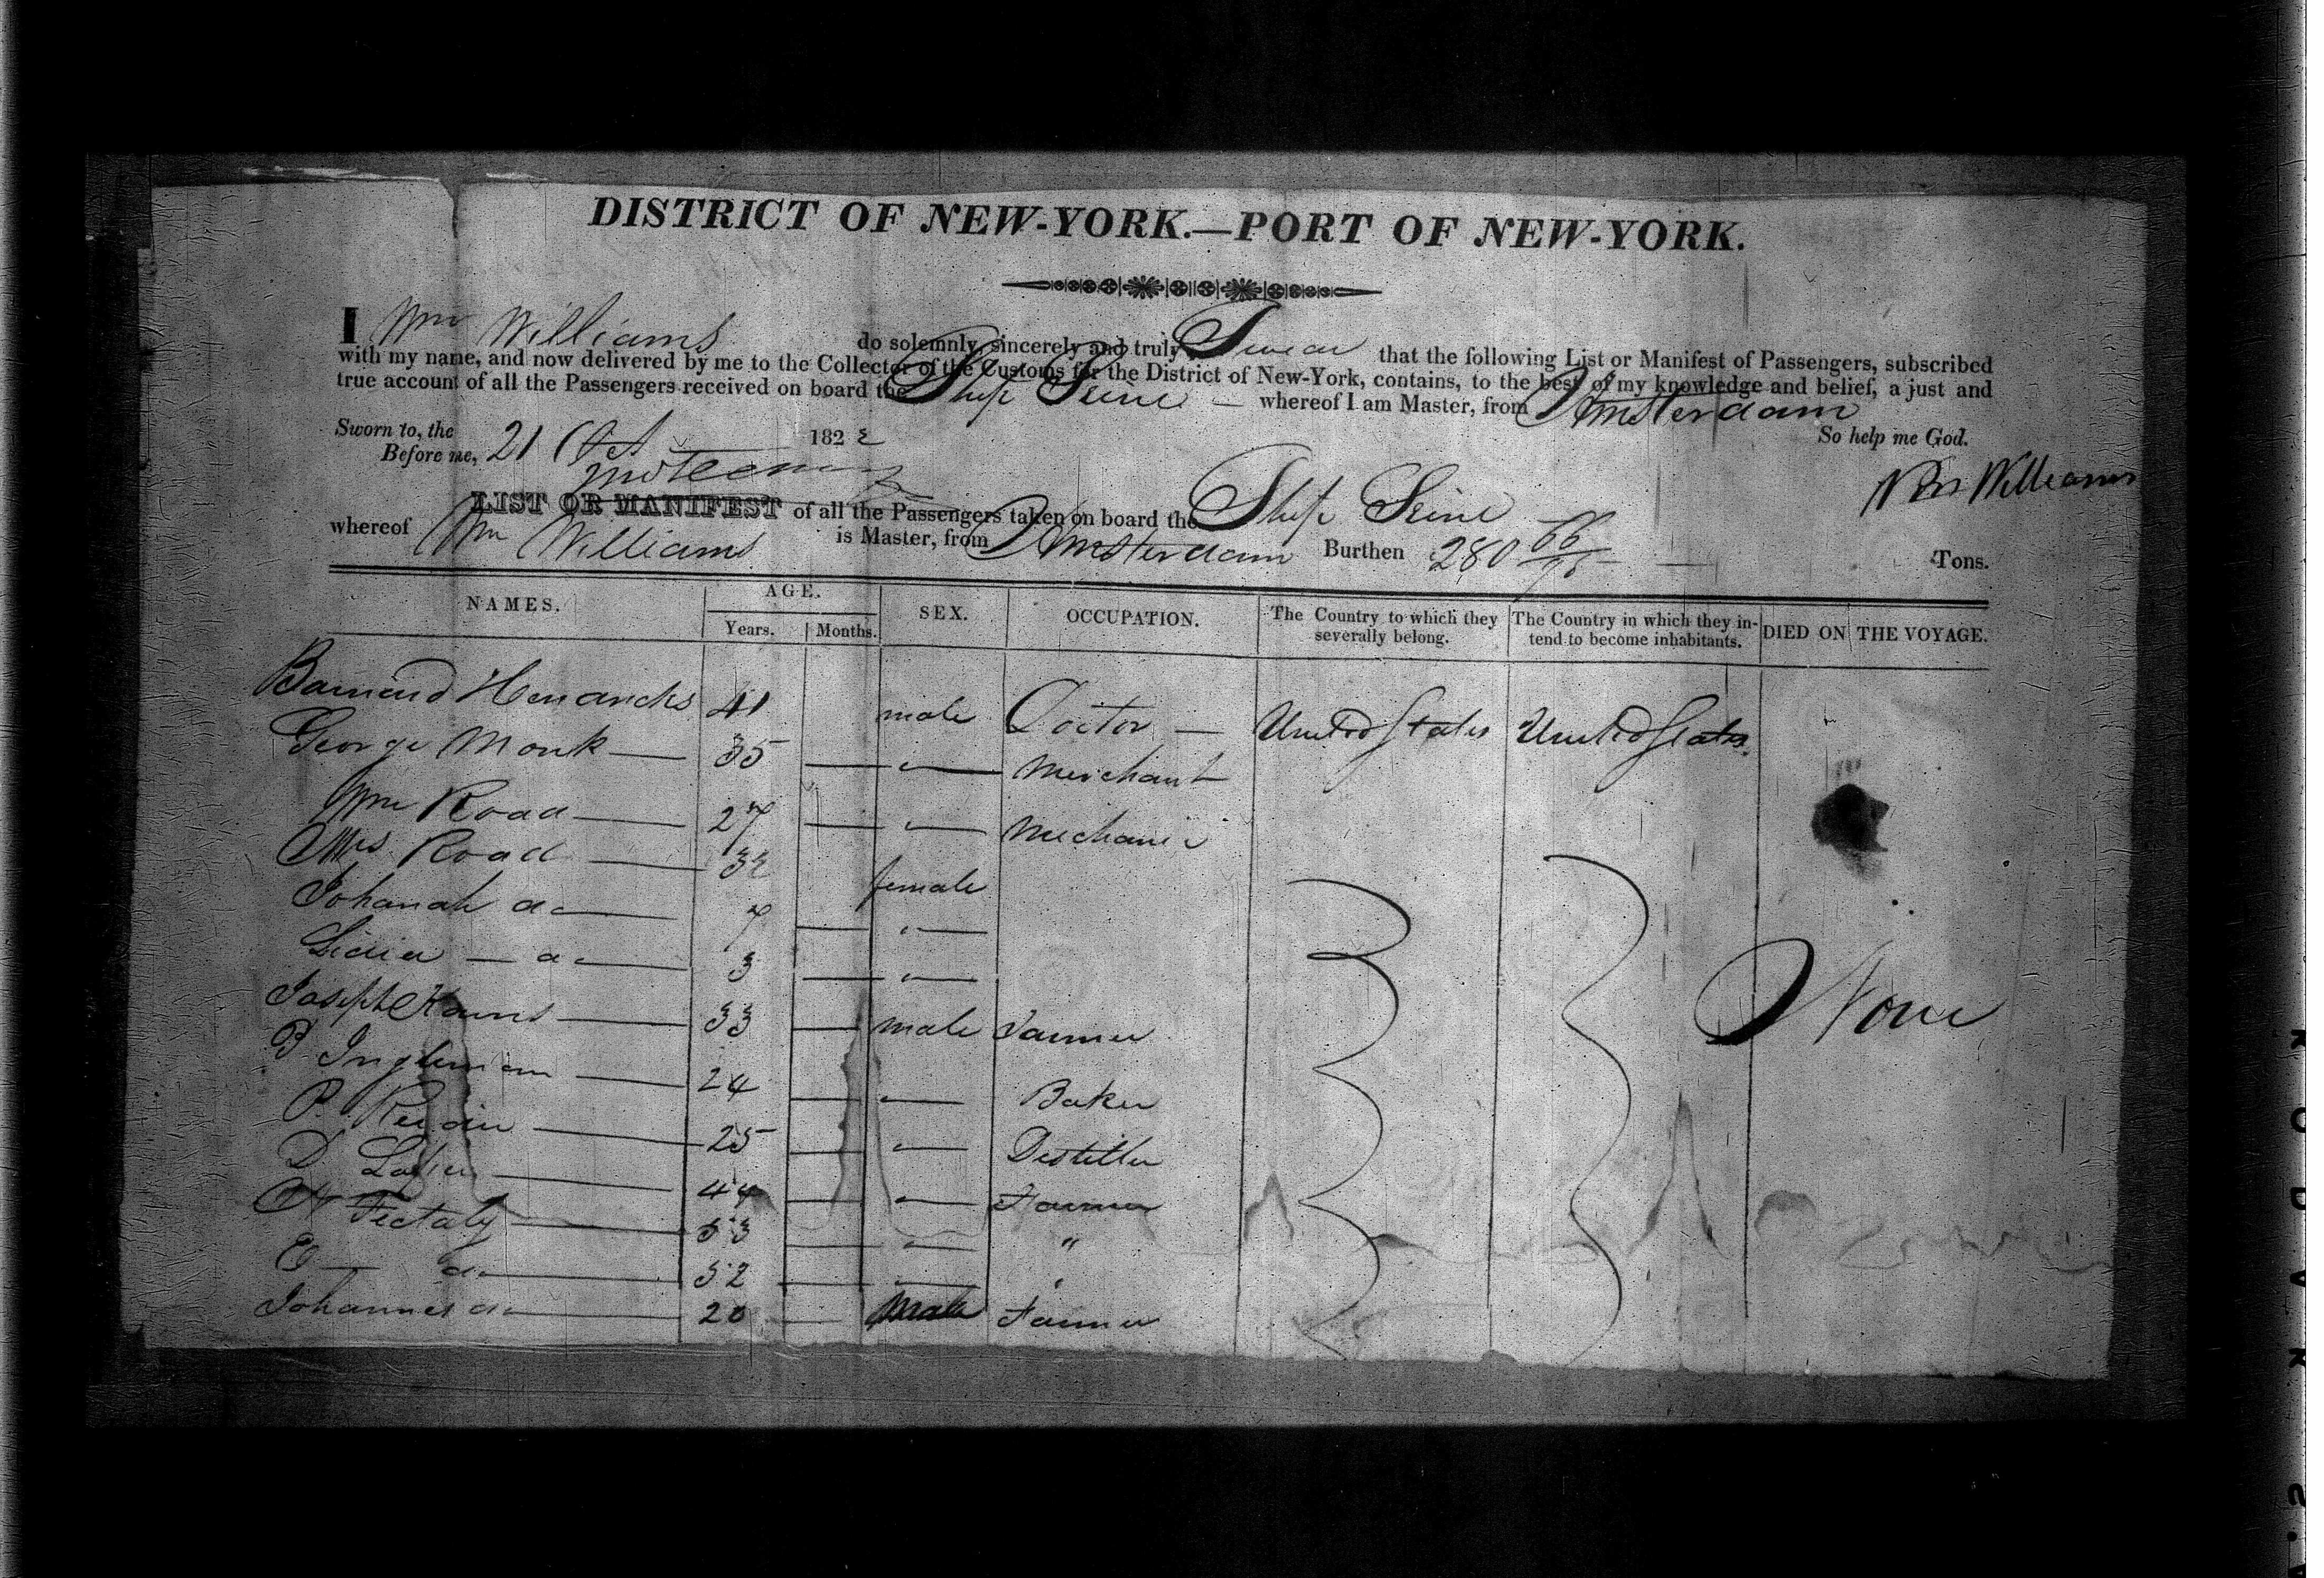 DISTRICT OF NEW-YORK.—PORT OF NEW-YORK.
I Wm Williams do solemnly, sincerely and truly Swear that the following List or Manifest of Passengers, subscribed
with my name, and now delivered by me to the Collector of the Customs for the District of New-York, contains, to the best of my knowledge and belief, a just and
true account of all the Passengers received on board the Ship Seine — whereof I am Master, from Amsterdam
Sworn to, the 21 Oct 1822 So help me God.
Before me,
Wm Williams
LIST OR MANIFEST of all the Passengers taken on board the Ship Seine
whereof Wm Williams is Master, from Amsterdam Burthen 280 66/95 Tons.
NAMES. AGE. Years. Months. SEX. OCCUPATION. The Country to which they severally belong. The Country in which they intend to become inhabitants. DIED ON THE VOYAGE.
Barnard Hendricks 41 male Doctor — United States United States
George Monk 35 — " — Merchant
Wm Road 27 — " — Mechanic
Mrs Road 32 female
Johanah do 7 — " —
Lidia — do 3 — " — None
Joseph 33 — male Farmer
24 — " — Baker
P. 25 — " — Distiller
D. 44 — " — Farmer
53 — " — "
E — do 52 — "
Johannes do 20 — male Farmer
KODAK S.A